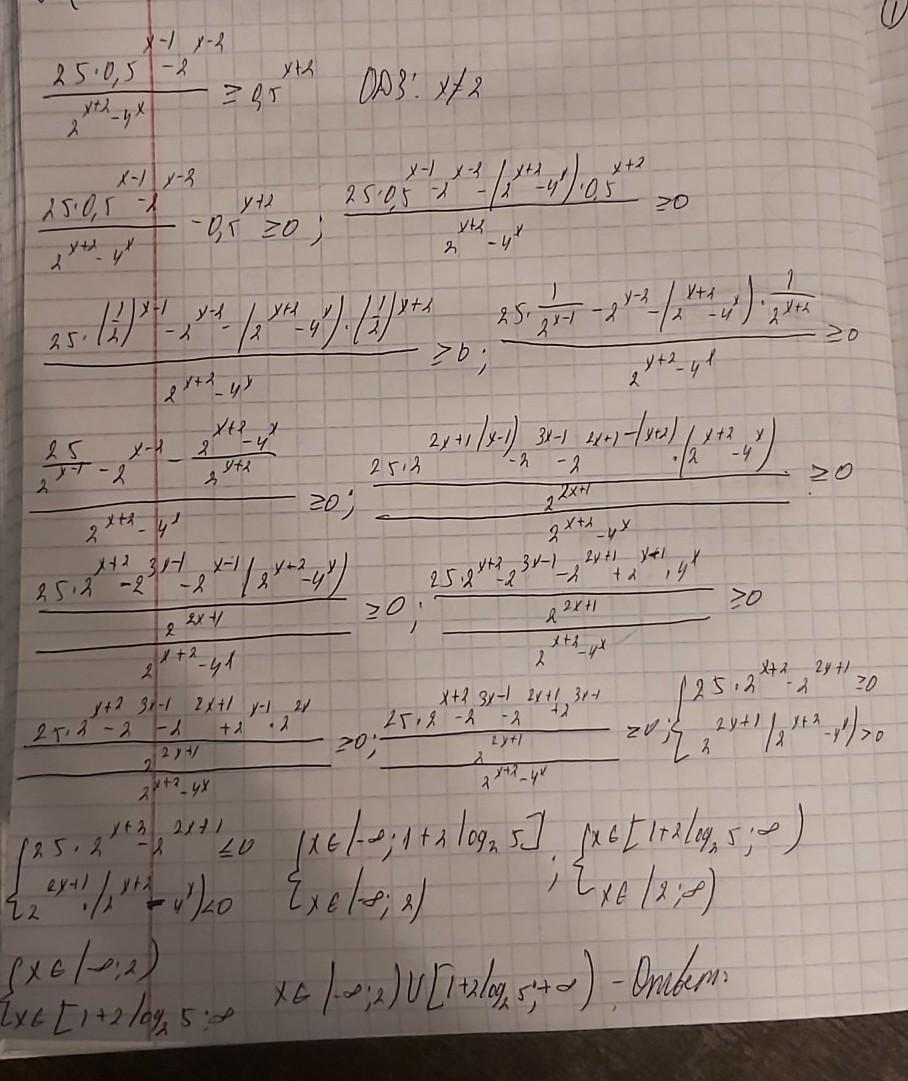 ①
(25·0,5^(x-1) - 2^(x-2))/(2^(x+2) - 4^x) ≥ 0,5^(x+2) ОДЗ: x≠2
(25·0,5^(x-1) - 2^(x-2))/(2^(x+2) - 4^x) - 0,5^(x+2) ≥ 0; (25·0,5^(x-1) - 2^(x-2) - (2^(x+2) - 4^x)·0,5^(x+2))/(2^(x+2) - 4^x) ≥ 0
(25·(1/2)^(x-1) - 2^(x-2) - (2^(x+2) - 4^x)·(1/2)^(x+2))/(2^(x+2) - 4^x) ≥ 0; (25·1/2^(x-1) - 2^(x-2) - (2^(x+2) - 4^x)·1/2^(x+2))/(2^(x+2) - 4^x) ≥ 0
(25/2^(x-1) - 2^(x-2) - (2^(x+2) - 4^x)/2^(x+2))/(2^(x+2) - 4^x) ≥ 0; ((25·2^(2x+1(x-1)) - 2^(3x-1) - 2^(2x+1-(x+2))·(2^(x+2) - 4^x))/2^(2x+1))/(2^(x+2) - 4^x) ≥ 0
((25·2^(x+2) - 2^(3x-1) - 2^(x-1)(2^(x+2) - 4^x))/2^(2x+1))/(2^(x+2) - 4^x) ≥ 0; ((25·2^(x+2) - 2^(3x-1) - 2^(2x+1) + 2^(x-1)·4^x)/2^(2x+1))/(2^(x+2) - 4^x) ≥ 0
((25·2^(x+2) - 2^(3x-1) - 2^(2x+1) + 2^(x-1)·2^(2x))/2^(2x+1))/(2^(x+2) - 4^x) ≥ 0; ((25·2^(x+2) - 2^(3x-1) - 2^(2x+1) + 2^(3x-1))/2^(2x+1))/(2^(x+2) - 4^x) ≥ 0; { 25·2^(x+2) - 2^(2x+1) ≥ 0
2^(2x+1)(2^(x+2) - 4^x) > 0
{ 25·2^(x+2) - 2^(2x+1) ≤ 0 { x∈(-∞; 1+2log₂5] ; { x∈[1+2log₂5; ∞)
2^(2x+1)·(2^(x+2) - 4^x) < 0 x∈(-∞; 2) x∈(2; ∞)
{ x∈(-∞; 2)
x∈[1+2log₂5; ∞ x∈(-∞; 2)∪[1+2log₂5; +∞) - Ответ: